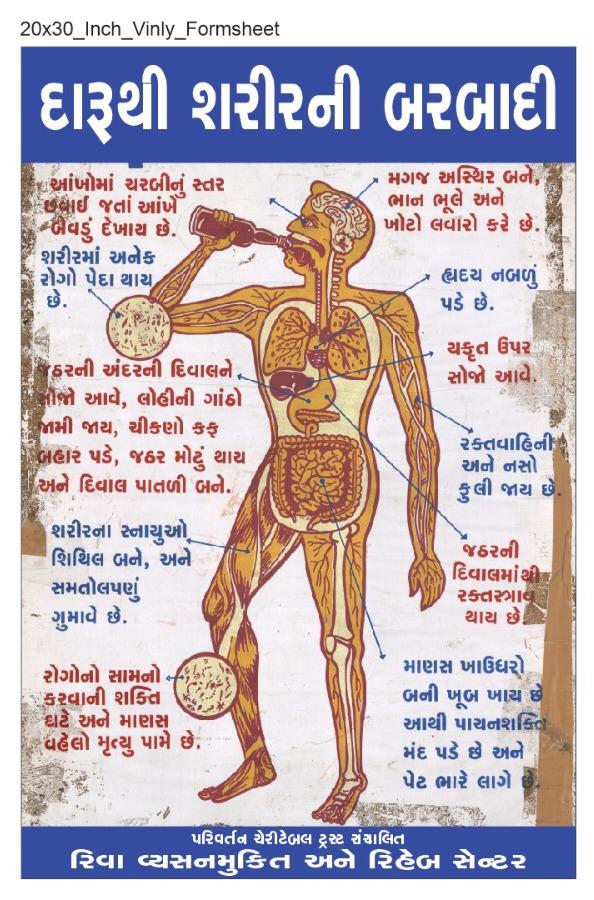 20x30_Inch_Vinly_Formsheet
દારૂથી શરીરની બરબાદી
આંખોમાં ચરબીનું સ્તર
છવાઈ જતાં આંખે
બેવડું દેખાય છે.
મગજ અસ્થિર બને,
ભાન ભૂલે અને
ખોટો લવારો કરે છે.
શરીરમાં અનેક
રોગો પેદા થાય
છે.
હ્રદય નબળું
પડે છે.
યકૃત ઉપર
સોજો આવે.
જઠરની અંદરની દિવાલને
સોજો આવે, લોહીની ગાંઠો
જામી જાય, ચીકણો કફ
બહાર પડે, જઠર મોટું થાય
અને દિવાલ પાતળી બને.
રક્તવાહિની
અને નસો
ફુલી જાય છે.
શરીરના સ્નાયુઓ
શિથિલ બને, અને
સમતોલપણું
ગુમાવે છે.
જઠરની
દિવાલમાંથી
રક્તસ્ત્રાવ
થાય છે.
રોગોનો સામનો
કરવાની શક્તિ
ઘટે અને માણસ
વહેલો મૃત્યુ પામે છે.
માણસ ખાઉધરો
બની ખૂબ ખાય છે
આથી પાચનશક્તિ
મંદ પડે છે અને
પેટ ભારે લાગે છે.
પરિવર્તન ચેરીટેબલ ટ્રસ્ટ સંચાલિત
રિવા વ્યસનમુકિત અને રિહેબ સેન્ટર